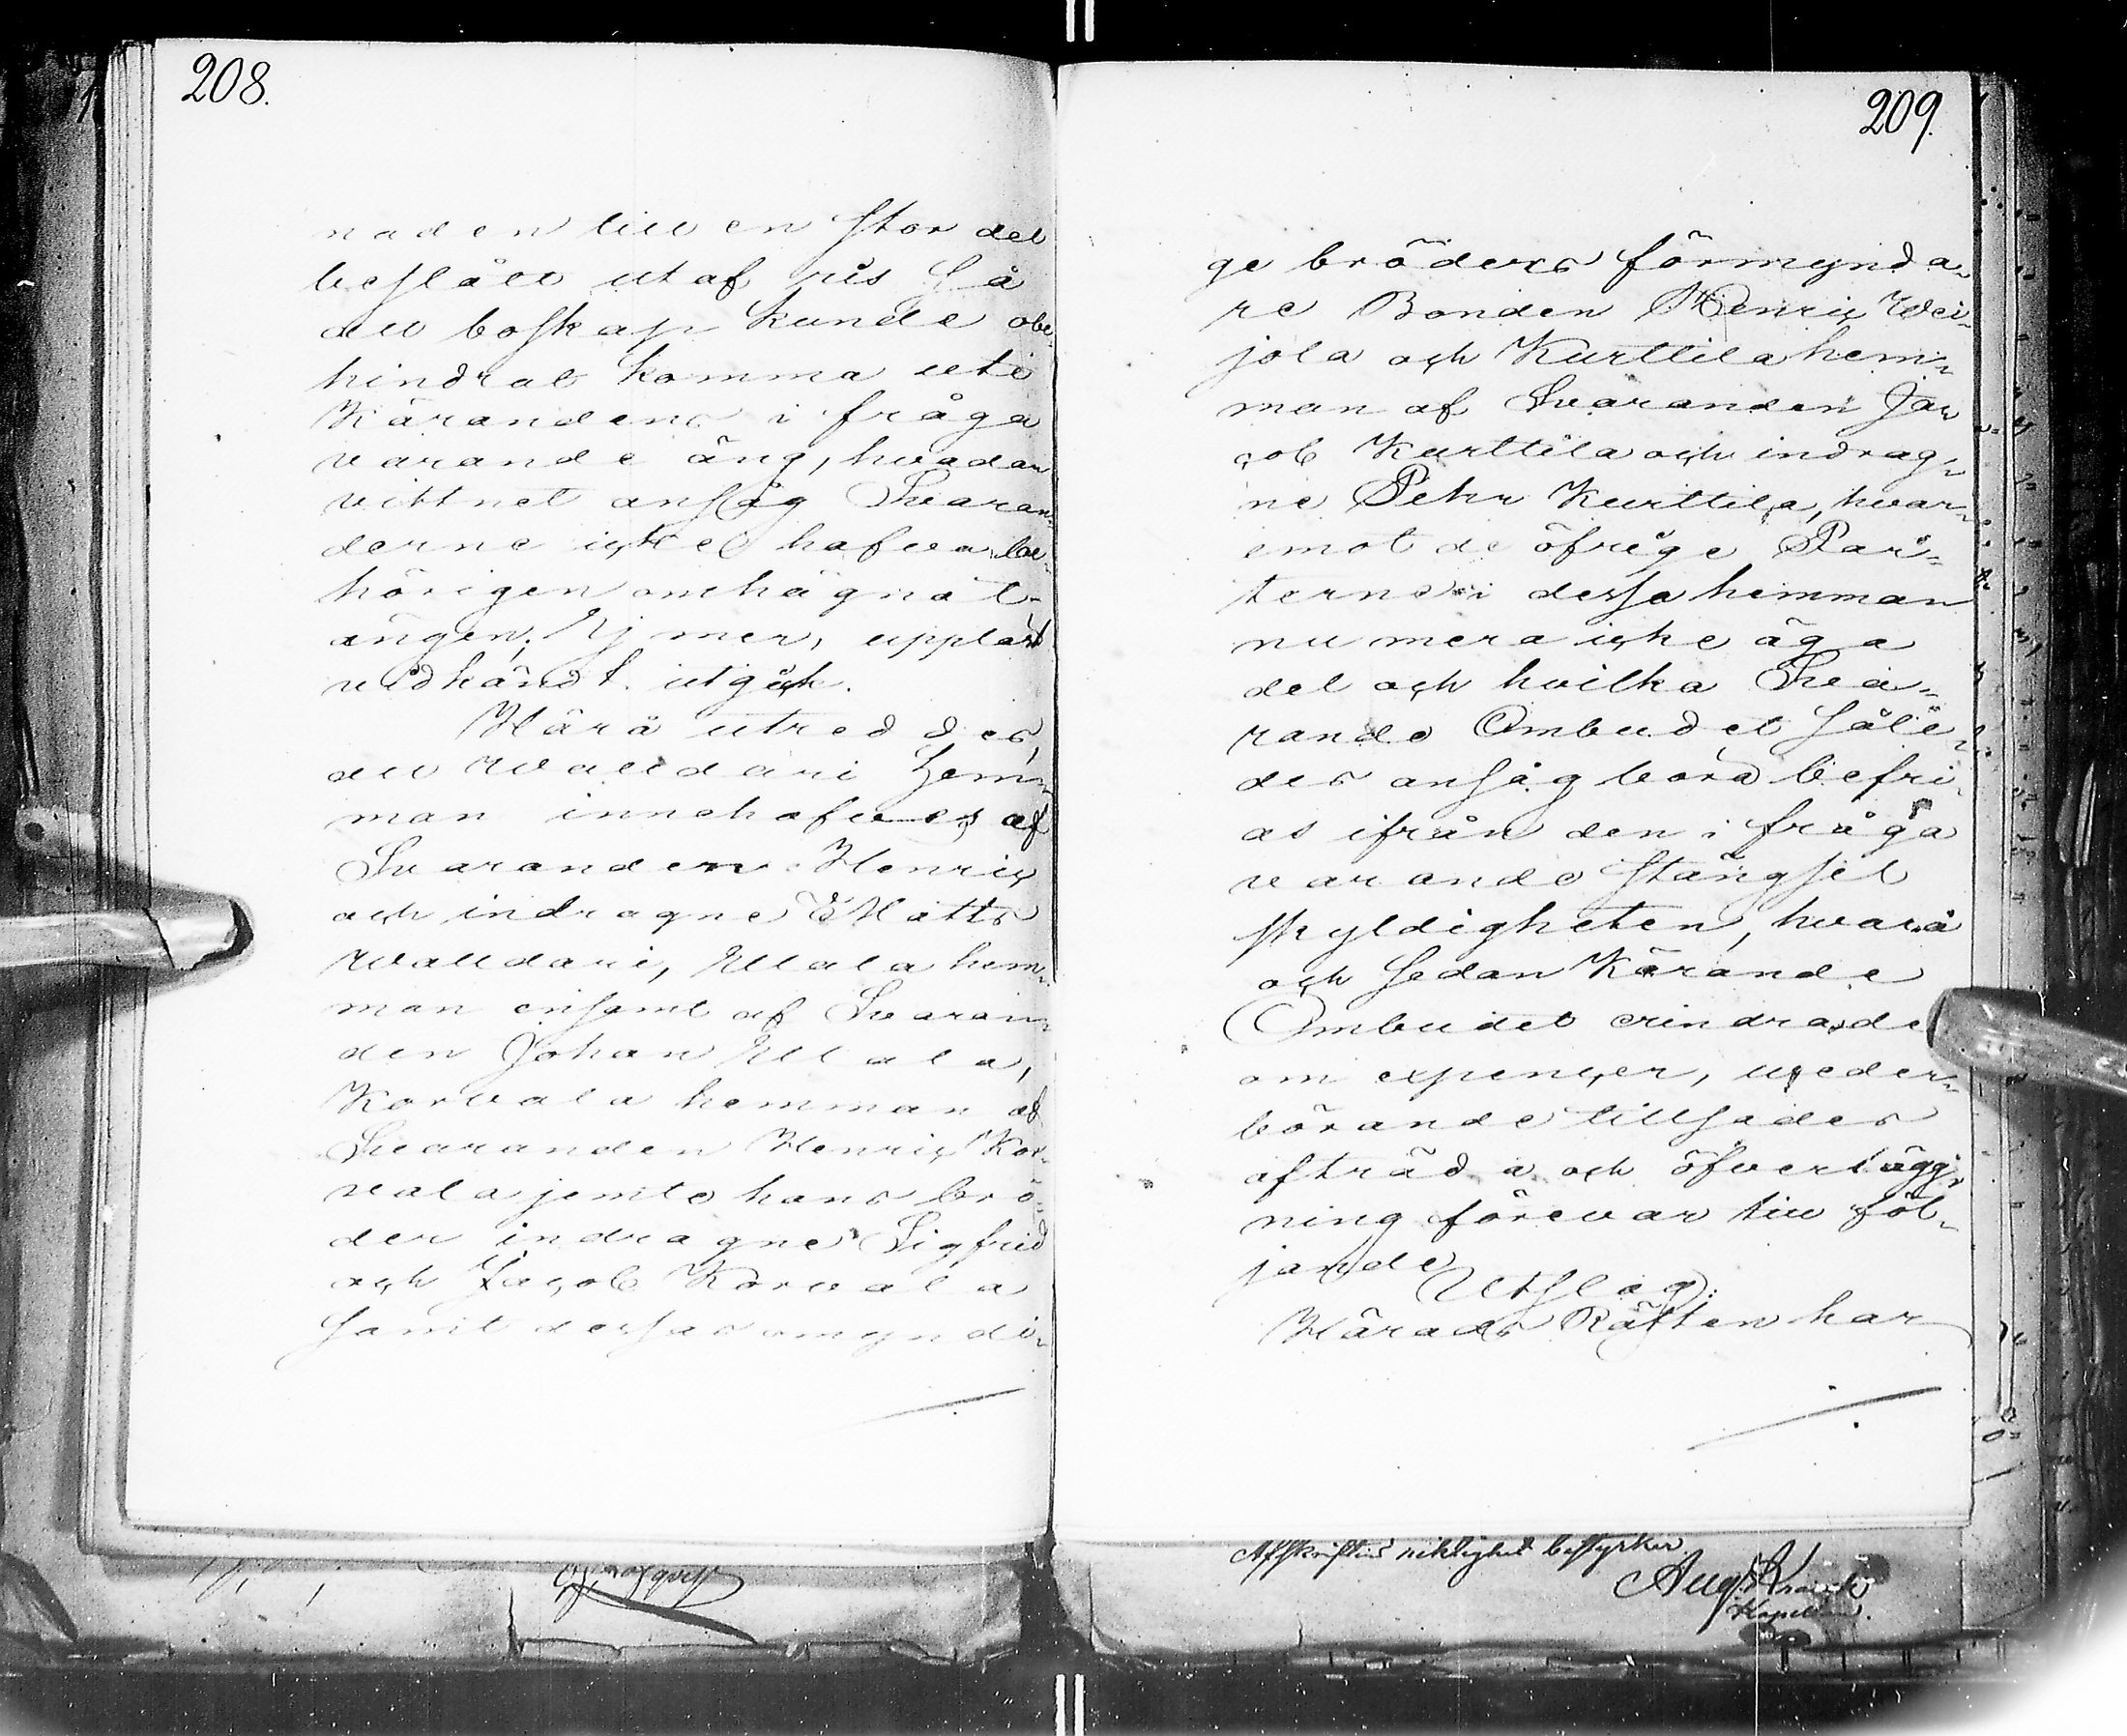 208.
naden till en stor del
beslått utaf ris så
att boskap kunde obe-
hindrat komma uti
Kärandens i fråga
varande äng, hvadan
vittnet ansåg Svaran-
derne icke hafva be-
hörigen omhägnat
ängen; Ej mer, uppläst
vidkändt. utgick.
Härå utreddes,
att Walldari hem-
man innehafves af
Svaranden Henric
och indragne Matts
Walldari, Ulala hem-
man ensamt af Svaran-
den Johan Ulala,
Korvala hemman af
Svaranden Henric Kor-
vala jemte hans brö-
der indragne Sigfrid
och Jacob Korvala
samt dessas omyndi-
209.
ge bröders förmynda-
re Bonden Henric Wei-
jola och Kurttila hem-
man af Svaranden Ja-
cob Kurttila och indrag-
ne Pehr Kurttila, hvar-
emot de öfrige Par-
terne i dessa hemman
nu mera icke äga
del och hvilka Sva-
rande Ombudet såle-
des ansåg bora befri-
as ifrån den i fråga
varande stängsel
skyldigheten, hvarå
och sedan Kärande
Ombudet erindrade
om expencer, veder-
börande tillsades
afträda och öfverlägg-
ning förevar till föl-
jande
Utslag:
Härads Rätten har
Afskriftens riktighet bestyrker
Aug.
Kapellan.